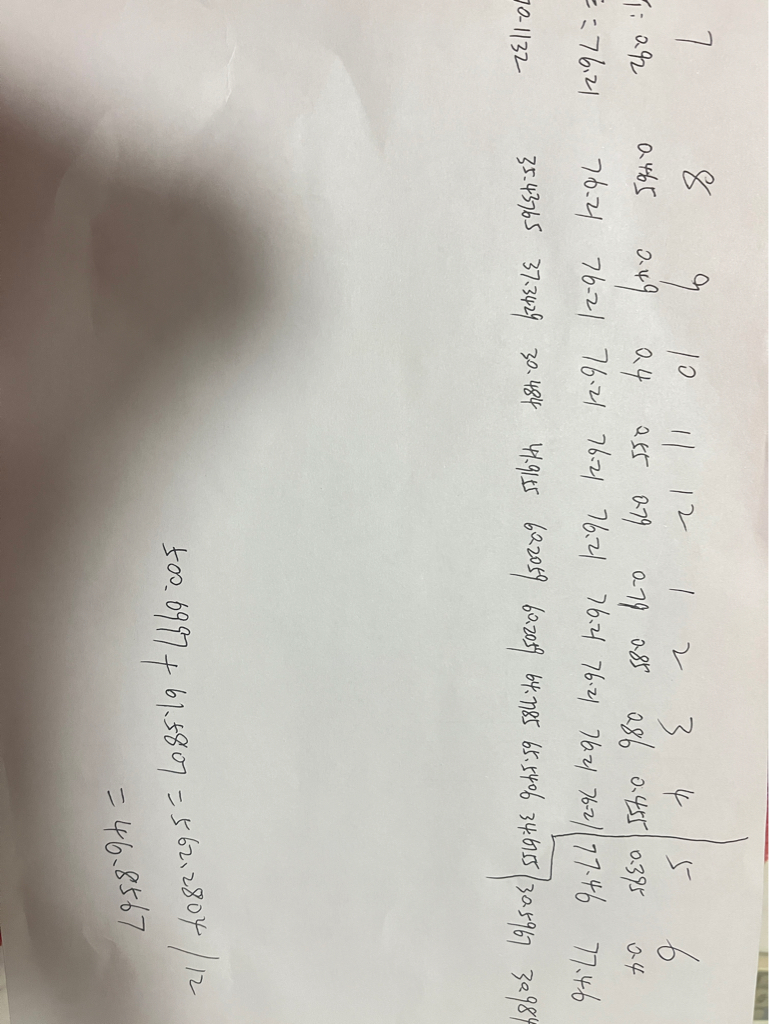 7 8 9 10 11 12 1 2 3 4 5 6
: 0.92 0.465 0.49 0.4 0.55 0.79 0.79 0.85 0.86 0.455 0.395 0.4
= 76.21 76.21 76.21 76.21 76.21 76.21 76.21 76.21 76.21 76.21 77.46 77.46
70.1132 35.43765 37.3429 30.484 41.9155 60.2059 60.2059 64.7785 65.5406 34.6755 30.5967 30.984
500.6997 + 61.5807 = 562.2804 /12
= 46.8567